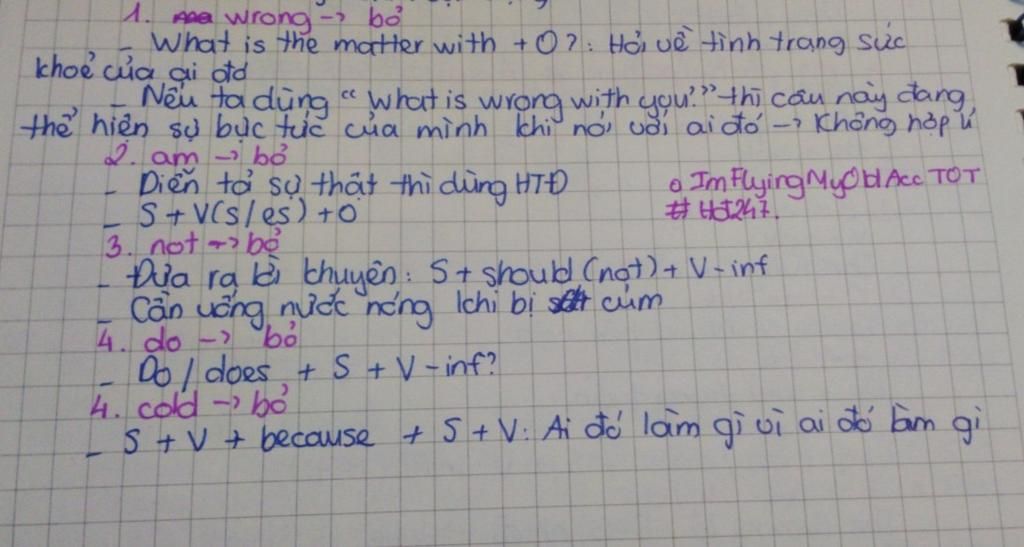 1. wrong -> bỏ
- What is the matter with + O?: Hỏi về tình trạng sức
khoẻ của ai đó
- Nếu ta dùng "What is wrong with you?" thì câu này đang
thể hiện sự bực tức của mình khi nói với ai đó -> Không hợp lí
2. am -> bỏ
- Diễn tả sự thật thì dùng HTĐ
- S + V(s/es) + O
o ImFlyingMyOldAcc TOT
# HĐ247.
3. not -> bỏ
- Đưa ra lời khuyên: S + should (not) + V-inf
- Cần uống nước nóng khi bị cúm
4. do -> bỏ
- Do / does + S + V-inf?
4. cold -> bỏ
- S + V + because + S + V: Ai đó làm gì vì ai đó làm gì